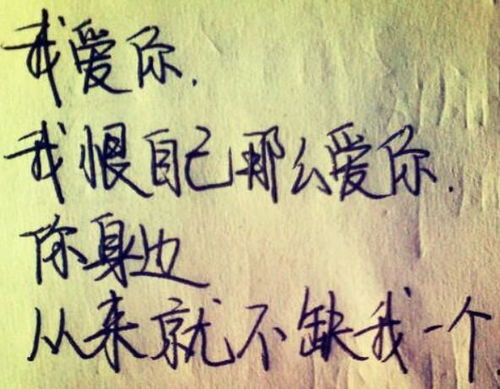 我爱你.
我恨自己那么爱你.
你身边
从来就不缺我一个